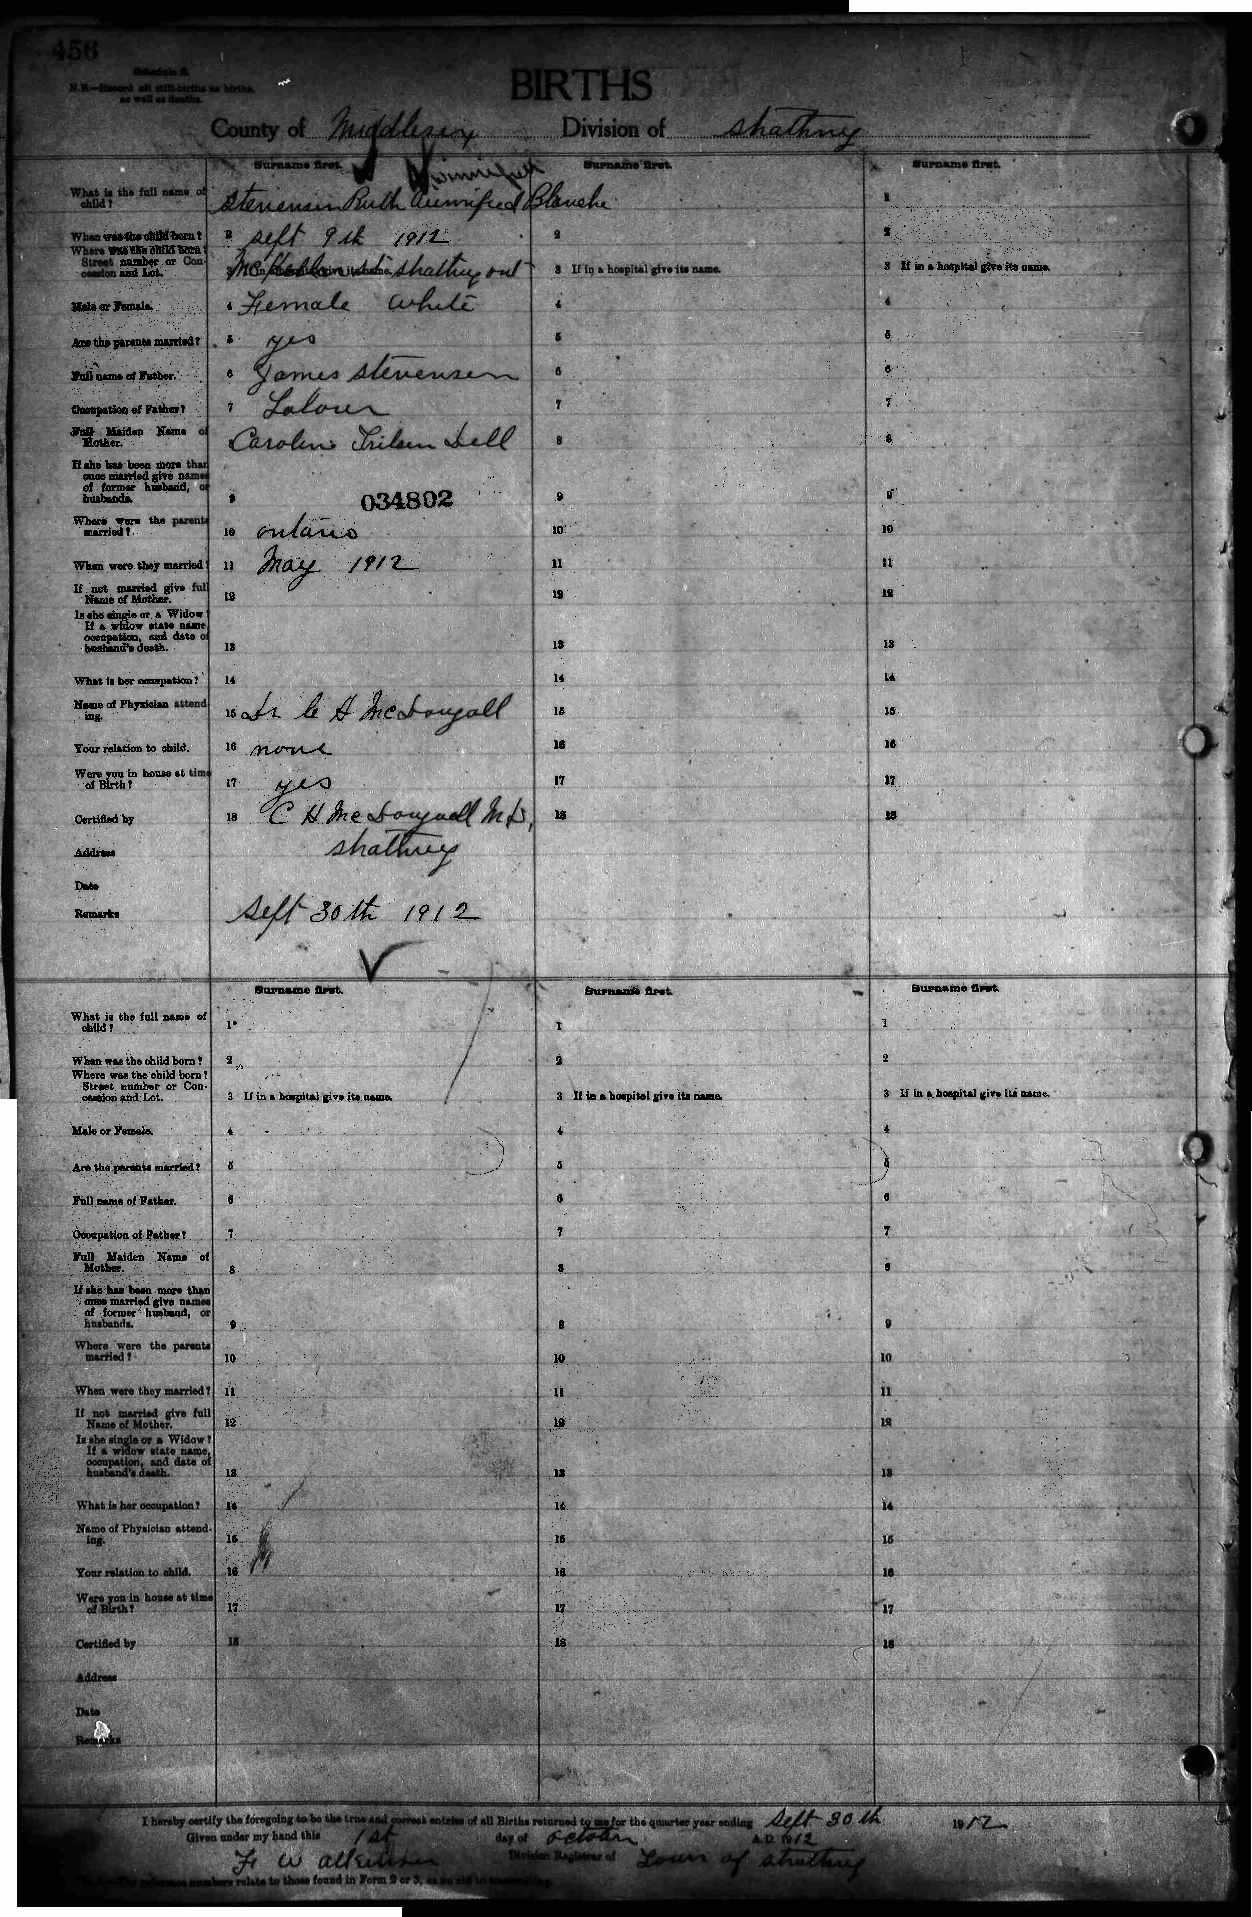 456
Schedule A.
N.B.—Record all still-births as births,
as well as deaths.
BIRTHS
County of Middlesex Division of Strathroy
Surname first. Surname first. Surname first.
Winnifred
What is the full name of
child?
Stevenson Ruth Winnifred Blanche
1
When was the child born? 2 Sept 9th 1912 2 2
Where was the child born?
Street number or Con-
cession and Lot.
3 If in a hospital give its name. Strathroy ont 3 If in a hospital give its name. 3 If in a hospital give its name.
Male or Female. 4 Female White 4 4
Are the parents married? 5 yes 5 5
Full name of Father. 6 James Stevenson 6 6
Occupation of Father? 7 Labour 7 7
Full Maiden Name of
Mother. Dell 8 8
If she has been more than
once married give names
of former husband, or
husbands. 9 034802 9 9
Where were the parents
married? 10 ontario 10 10
When were they married? 11 May 1912 11 11
If not married give full
Name of Mother. 12 12 12
Is she single or a Widow?
If a widow state name,
occupation, and date of
husband's death. 13 13 13
What is her occupation? 14 14 14
Name of Physician attend-
ing. 15 Dr C H McDougall 15 15
Your relation to child. 16 none 16 16
Were you in house at time
of Birth? 17 yes 17 17
Certified by 18 C H McDougall M.D. 18 18
Address Strathroy
Date
Remarks Sept 30th 1912
Surname first. Surname first. Surname first.
What is the full name of
child? 1 1 1
When was the child born? 2 2 2
Where was the child born?
Street number or Con-
cession and Lot. 3 If in a hospital give its name. 3 If in a hospital give its name. 3 If in a hospital give its name.
Male or Female. 4 4 4
Are the parents married? 5 5 5
Full name of Father. 6 6 6
Occupation of Father? 7 7 7
Full Maiden Name of
Mother. 8 8 8
If she has been more than
once married give names
of former husband, or
husbands. 9 9 9
Where were the parents
married? 10 10 10
When were they married? 11 11 11
If not married give full
Name of Mother. 12 12 12
Is she single or a Widow?
If a widow state name,
occupation, and date of
husband's death. 13 13 13
What is her occupation? 14 14 14
Name of Physician attend-
ing. 15 15 15
Your relation to child. 16 16 16
Were you in house at time
of Birth? 17 17 17
Certified by 18 18 18
Address
Date
Remarks
I hereby certify the foregoing to be the true and correct entries of all Births returned to me for the quarter year ending Sept 30th 1912
Given under my hand this 1st day of october A.D. 1912
F W Atkinson Division Registrar of Town of Strathroy
reference numbers relate to those found in Form 2 or 3, as an aid to transcribing.